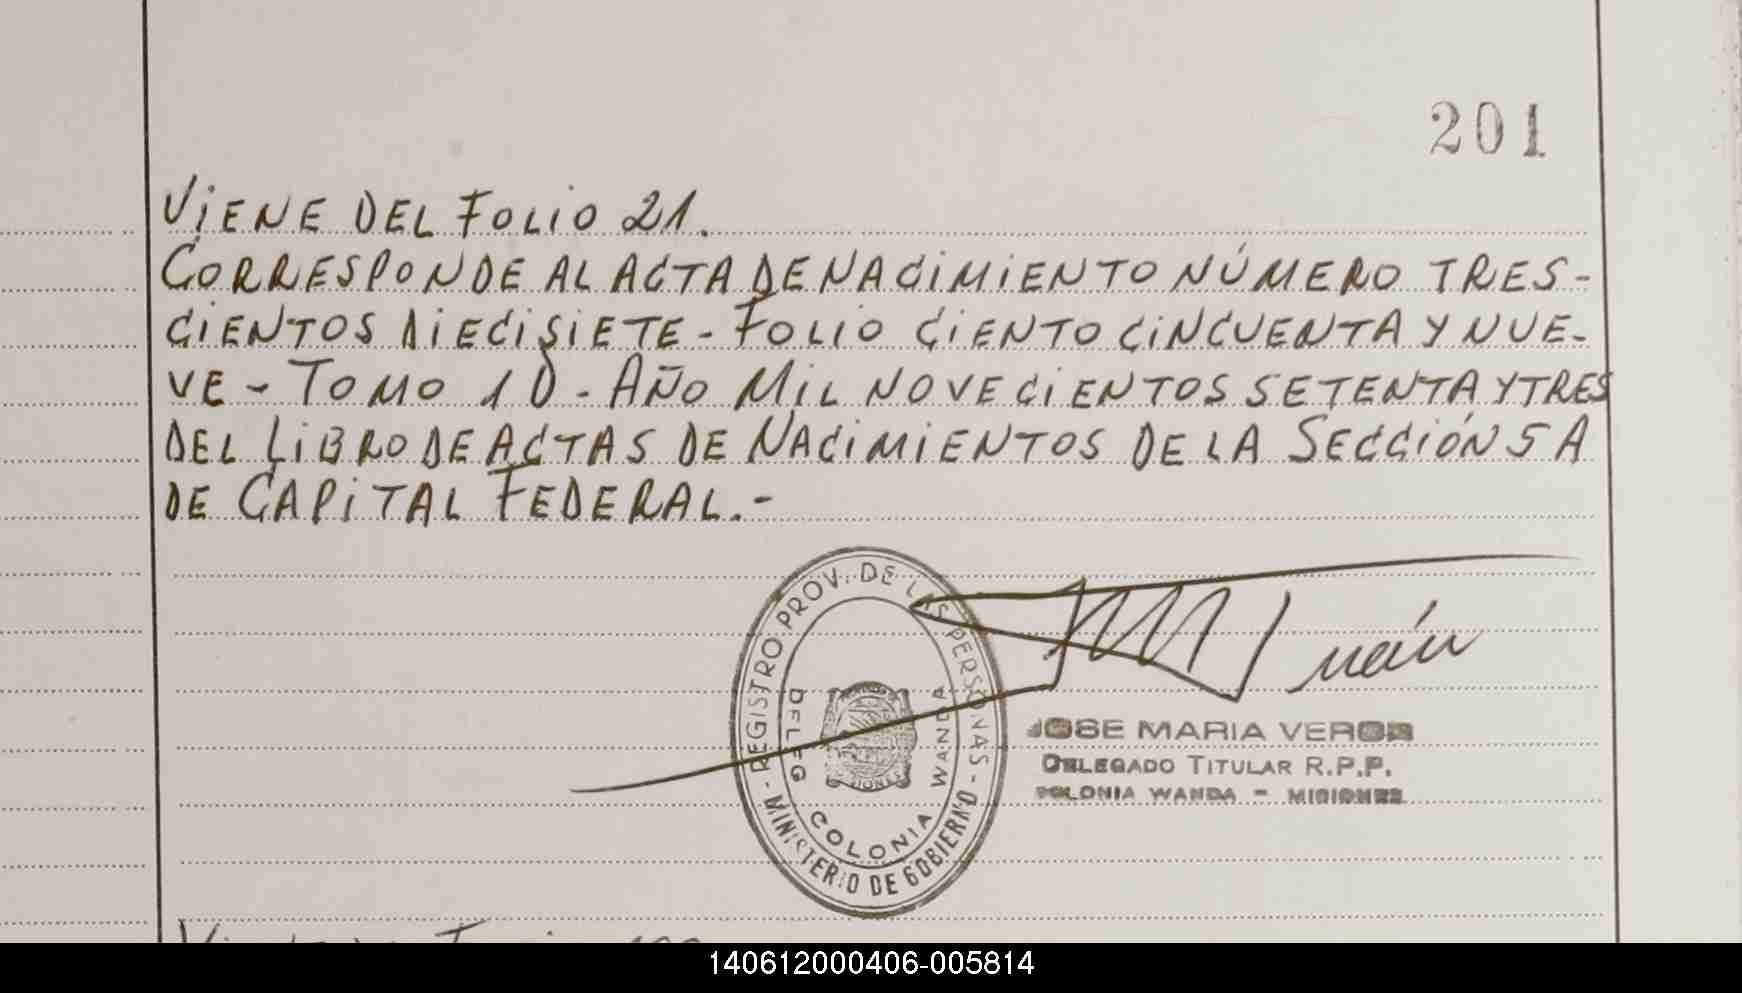 201
ViENE DEL FOLiO 21.
CORRESPONDE AL ACTA DE NACiMiENTO NÚMERO TRES-
CiENTOS DiECiSiETE - FOLiO CiENTO CiNCUENTA Y NUE-
VE - TOMO 1 D - AÑO MiL NOVECiENTOS SETENTA Y TRES
DEL LiBRO DE ACTAS DE NACiMiENTOS DE LA SECCiÓN 5 A
DE CAPiTAL FEDERAL.-
- REGISTRO PROV. DE LAS PERSONAS -
MINISTERIO DE GOBIERNO
DELEG COLONIA WANDA
MISIONES
JOSE MARIA
DELEGADO TITULAR R.P.P.
COLONIA WANDA - MISIONES
140612000406-005814